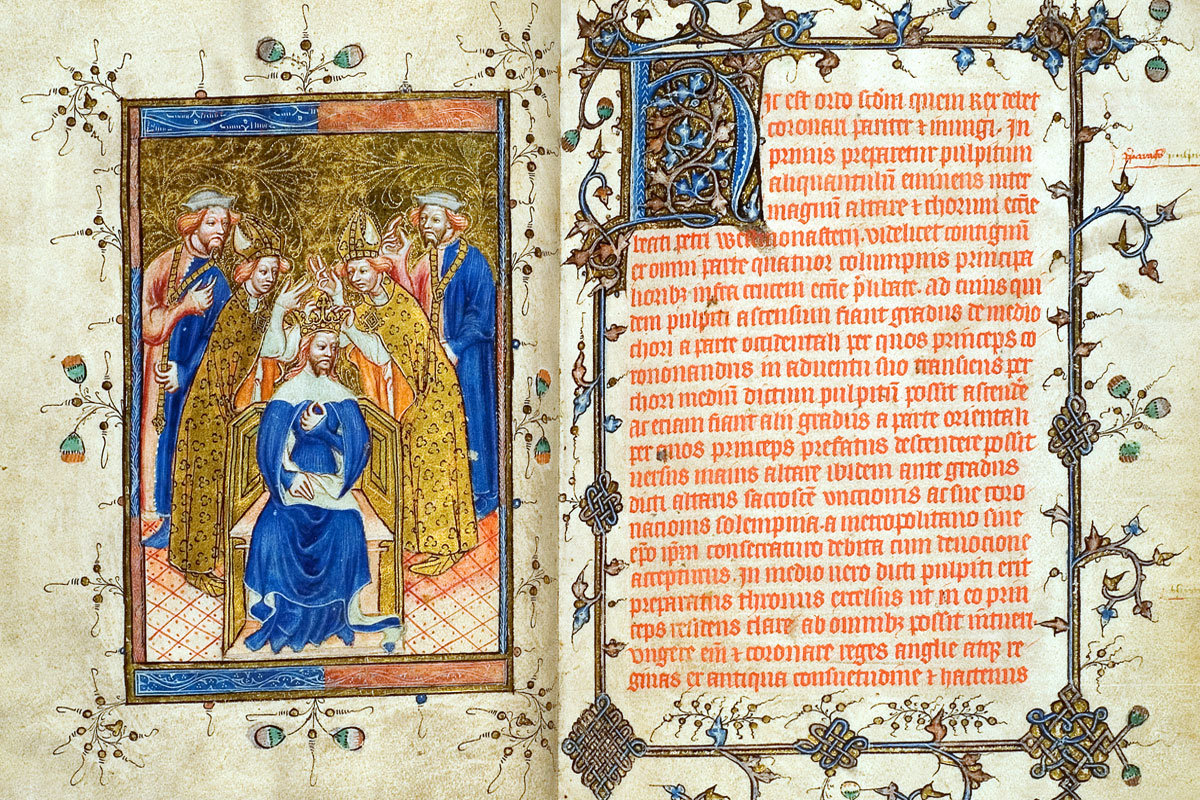 Hic est ordo scdm̄ quem Rex debet
coronari pariter & inungi. In
primis preparetur pulpitum
aliquantulū eminens inter
magnū altare & chorum ecc̄ie
beati petri Westmonasterii. videlicet contiguū
ex omni parte quatuor columpnis principa
lioribꝫ infra crucem ecc̄ie p̄libate. ad cuius qui
dem pulpiti ascensum fiant gradus de medio
chori a parte occidentali per quos princeps co
ronandus in adventu suo transiens per
chori mediū dictum pulpitū possit ascendēre
ac etiam fiant alii gradus a parte orientali
per quos princeps prefatus descendere possit
versus maius altare ibidem ante gradus
dicti altaris sacroscē unctionis ac sue coro
nacionis solempnia. a metropolitano sive
ep̄o ip̄m consecraturo debita cum devocione
accepturus. In medio vero dicti pulpiti erit
preparatus thronus excelsus ut in eo prin
ceps residens clare ab omnibꝫ possit intueri.
ungere em̄ & coronare reges anglie atqꝫ re
ginas ex antiqua consuetudine & hactenus